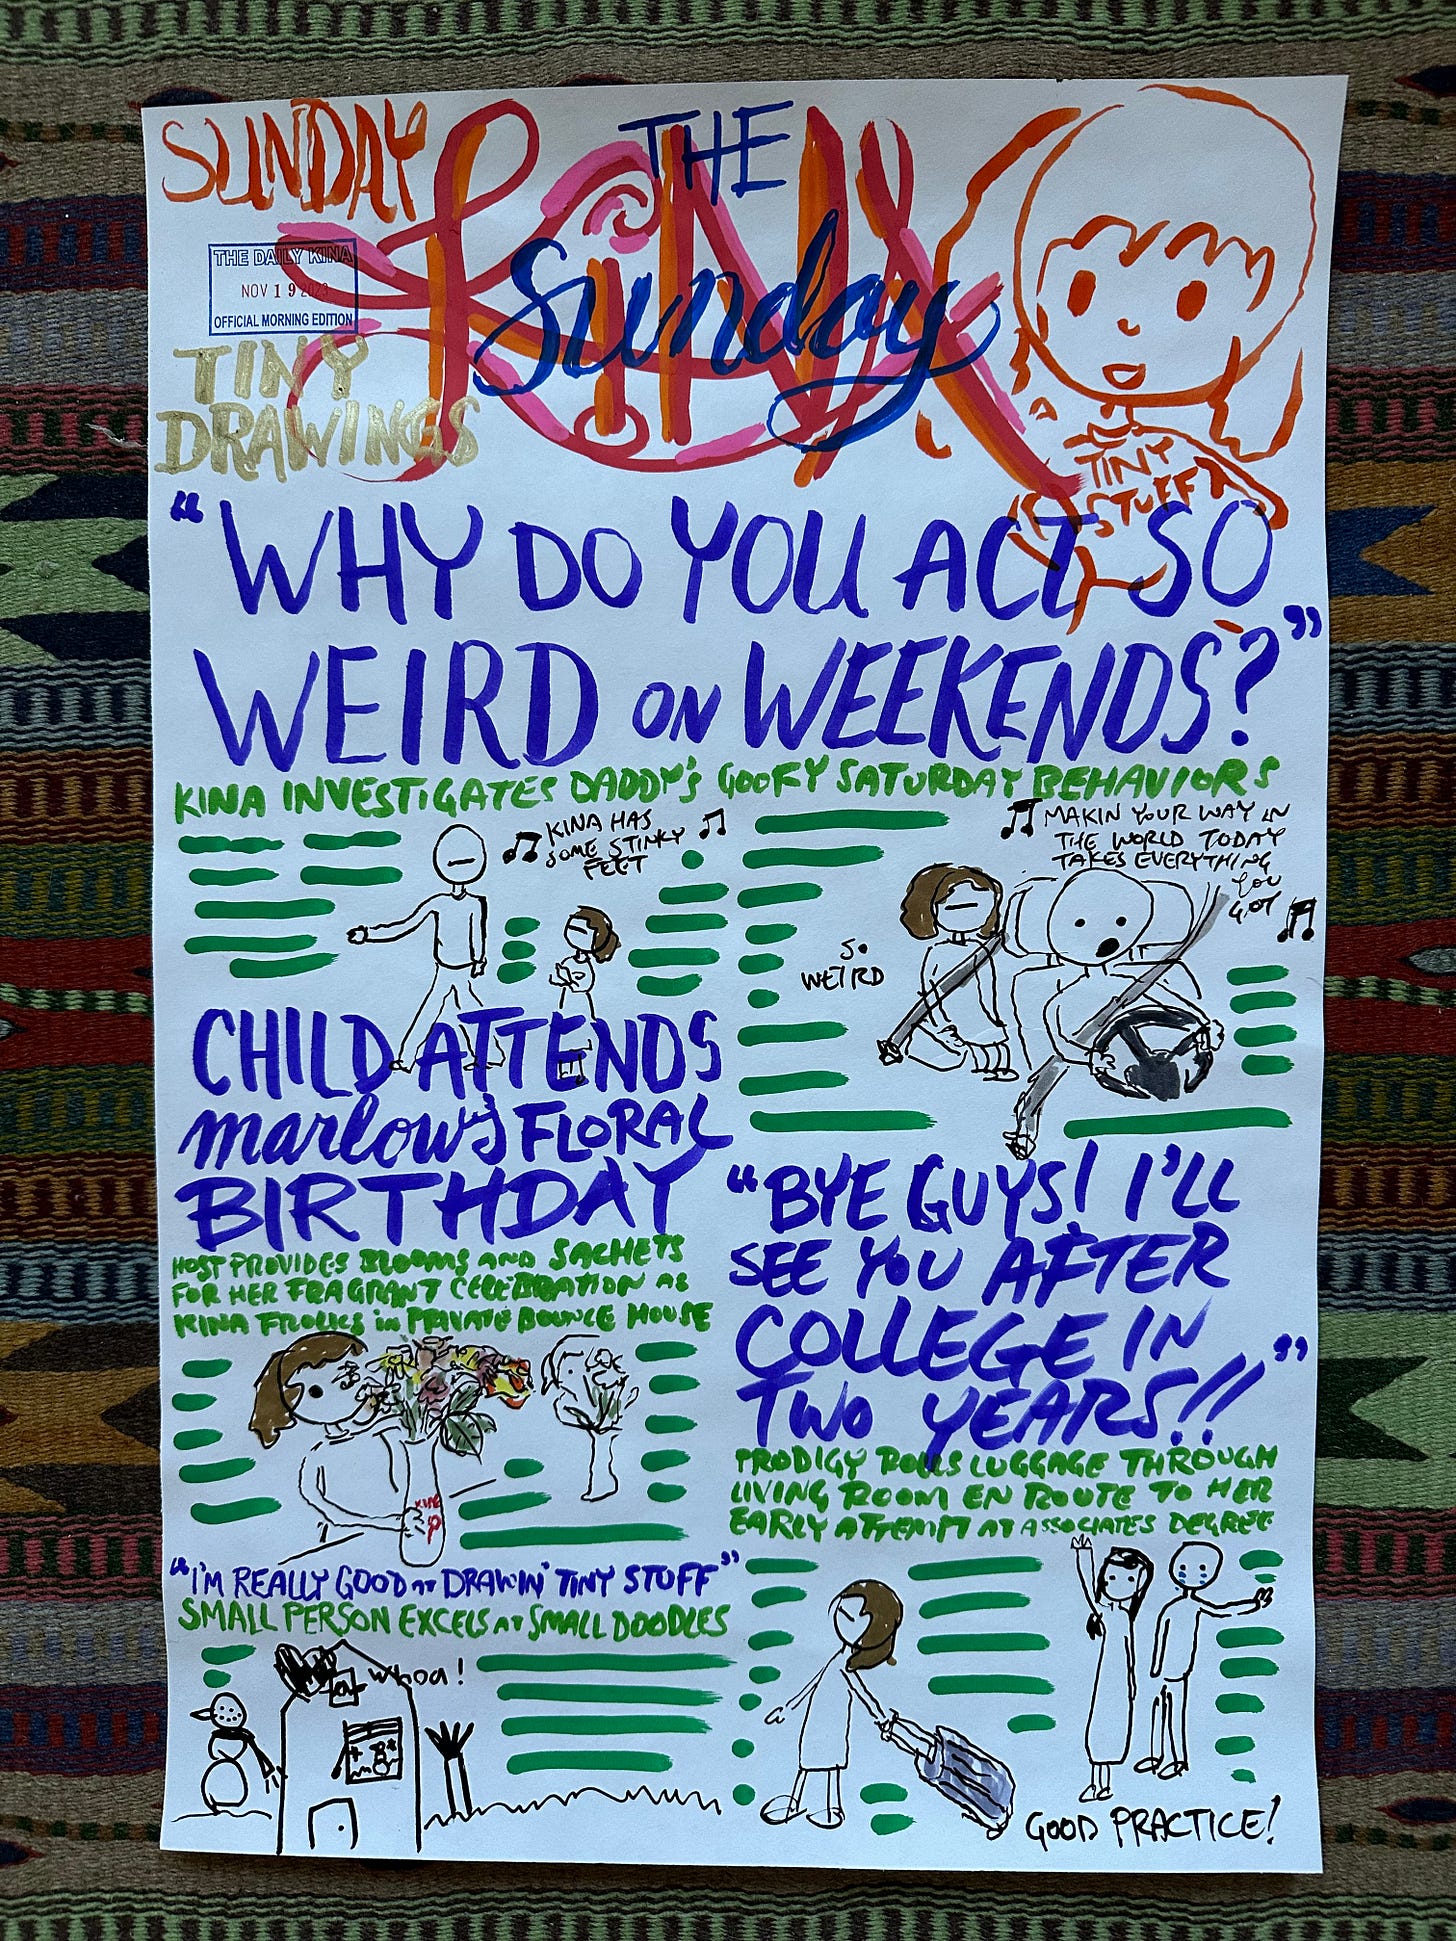 SUNDAY
THE
KINA
Sunday
THE DAILY KINA
NOV 19 2023
OFFICIAL MORNING EDITION
TINY
DRAWINGS
TINY
STUFF
"WHY DO YOU ACT SO
WEIRD ON WEEKENDS?"
KINA INVESTIGATES DADDY'S GOOFY SATURDAY BEHAVIORS
KINA HAS
SOME STINKY
FEET
MAKIN YOUR WAY IN
THE WORLD TODAY
TAKES EVERYTHING
YOU
GOT
SO
WEIRD
CHILD ATTENDS
marlow's FLORAL
BIRTHDAY
HOST PROVIDES BLOOMS AND SACHETS
FOR HER FRAGRANT CELEBRATION AS
KINA FROLICS in PRIVATE BOUNCE HOUSE
"BYE GUYS! I'LL
SEE YOU AFTER
COLLEGE IN
TWO YEARS!!"
PRODIGY ROLLS LUGGAGE THROUGH
LIVING ROOM EN ROUTE TO HER
EARLY ATTEMPT AT ASSOCIATES DEGREE
"I'M REALLY GOOD AT DRAWIN' TINY STUFF"
SMALL PERSON EXCELS AT SMALL DOODLES
whoa!
GOOD PRACTICE!